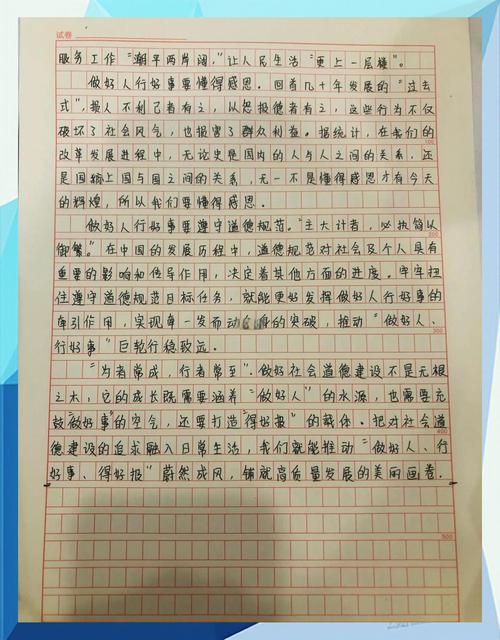 试卷
服务工作“潮平两岸阔,”让人民生活“更上一层楼”。
做好人行好事要懂得感恩。回首几十年发展的“过去
式”,损人不利己者有之,以怨报德者有之,这些行为不仅
破坏了社会风气,也损害了群众利益。据统计,在我们的
100
改革发展进程中,无论史是国内的人与人之间的关系,还
是国际上国与国之间的关系,无一不是懂得感恩才有今天
的辉煌,所以我们要懂得感恩。
做好人行好事要遵守道德规范。“主大计者,必执简以
200
御繁。”在中国的发展历程中,道德规范对社会及个人具有
重要的影响和传导作用,决定着其他方面的进度。牢牢扭
住遵守道德规范目标任务,就能更好发挥做好人行好事的
牵引作用,实现牵一发而动全身的突破,推动“做好人、
300
行好事”巨轮行稳致远。
“为者常成,行者常至”.做好社会道德建设不是无根
之木,它的成长既需要涵养“做好人”的水源,也需要充
鼓“做好事”的空气,还要打造“得好报”的载体。把对社会道
400
德建设的追求融入日常生活,我们就能推动“做好人、行
好事、得好报”蔚然成风,铺就高质量发展的美丽画卷.
500